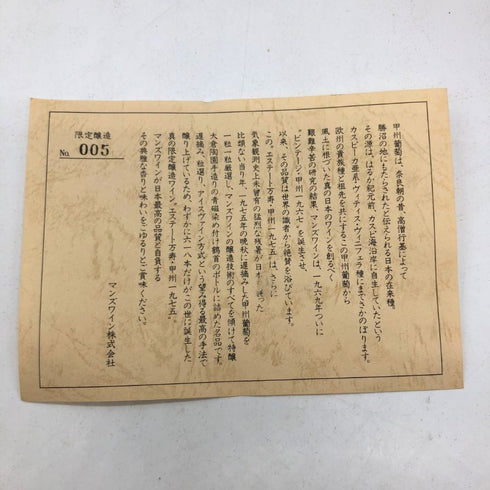 甲州葡萄は、奈良朝の昔、高僧行基によって
勝沼の地にもたらされたと伝えられる日本の在来種。
その源は、はるか紀元前、カスピ海沿岸に自生していたという
カスピーカ亜系・ヴィティス・ヴィニフェラ種にまでさかのぼります。
欧州の貴族種と祖先を共にするこの甲州葡萄から
風土に根づいた真の日本のワインを創るべく
艱難辛苦の研究の結果、マンズワインは、一九六九年ついに
"ビンテージ・甲州一九六七"を誕生させ、
以来、その品質は世界の識者から絶賛を浴びています。
この"エステート万寿・甲州一九七五"は、さらに
気象観測史上未曾有の猛烈な残暑が日本を襲った
比類ない当り年、一九七五年の晩秋に遅摘みした甲州葡萄を
一粒一粒厳選し、マンズワインの醸造技術のすべてを傾けて特醸
大倉陶園手造りの青磁染め付け鶴首のボトルに詰めた名品です。
遅摘み、粒選り、アイスヴァイン方式という望み得る最高の手法で
醸り上げているため、わずかに六一八本だけがこの世に誕生した
真の限定醸造ワイン"エステート万寿・甲州一九七五"。
マンズワインが日本最高の品質と自負する
その典雅な香りと味わいをごゆるりとご賞味ください。
マンズワイン株式会社
限定醸造
No. 005